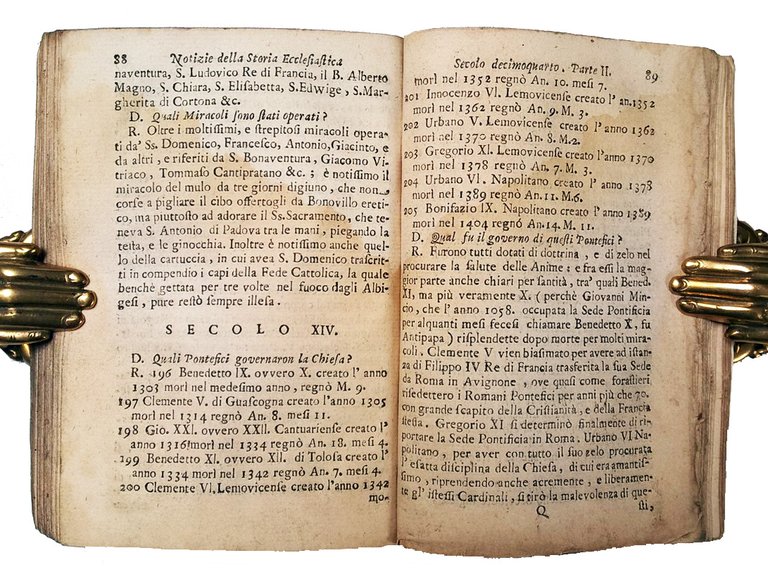 88 Notizie della Storia Ecclesiastica
naventura, S. Ludovico Re di Francia, il B. Alberto
Magno, S. Chiara, S. Elisabetta, S. Edwige, S. Mar-
gherita di Cortona &c.
D. Quali Miracoli sono stati operati?
R. Oltre i moltissimi, e strepitosi miracoli opera-
ti da' Ss. Domenico, Francesco, Antonio, Giacinto, e
da altri, e riferiti da S. Bonaventura, Giacomo Vi-
triaco, Tommaso Cantipratano &c.; è notissimo il
miracolo del mulo da tre giorni digiuno, che non
corse a pigliare il cibo offertogli da Bonovillo ereti-
co, ma piuttosto ad adorare il Ss. Sacramento, che te-
neva S. Antonio di Padova tra le mani, piegando la
testa, e le ginocchia. Inoltre è notissimo anche quel-
lo della cartuccia, in cui avea S. Domenico trascrit-
ti in compendio i capi della Fede Cattolica, la quale
benchè gettata per tre volte nel fuoco dagli Albi-
gesi, pure restò sempre illesa.
SECOLO XIV.
D. Quali Pontefici governaron la Chiesa?
R. 196 Benedetto IX. ovvero X. creato l'anno
1303 morì nel medesimo anno, regnò M. 9.
197 Clemente V. di Guascogna creato l'anno 1305
morì nel 1314 regnò An. 8. mesi 11.
198 Gio. XXI. ovvero XXII. Cantuariense creato l'
anno 1316 morì nel 1334 regnò An. 18. mesi 4.
199 Benedetto XI. ovvero XII. di Tolosa creato l'
anno 1334 morì nel 1342 regnò An. 7. mesi 4.
200 Clemente VI. Lemovicense creato l'anno 1342
mo-
Secolo decimoquarto. Parte II. 89
morì nel 1352 regnò An. 10. mesi 7.
201 Innocenzo VI. Lemovicense creato l'an. 1352
morì nel 1362 regnò An. 9. M. 3.
202 Urbano V. Lemovicense creato l'anno 1362
morì nel 1370 regnò An. 8. M. 2.
203 Gregorio XI. Lemovicense creato l'anno 1370
morì nel 1378 regnò An. 7. M. 3.
204 Urbano VI. Napolitano creato l'anno 1378
morì nel 1389 regnò An. 11. M. 6.
205 Bonifazio IX. Napolitano creato l'anno 1389
morì nel 1404 regnò An. 14. M. 11.
D. Qual fu il governo di questi Pontefici?
R. Furono tutti dotati di dottrina, e di zelo nel
procurare la salute delle Anime: e fra essi la mag-
gior parte anche chiari per santità, tra' quali Bened.
XI, ma più veramente X. (perchè Giovanni Min-
cio, che l'anno 1058. occupata la Sede Pontificia
per alquanti mesi fecesi chiamare Benedetto X, fu
Antipapa) risplendette dopo morte per molti mira-
coli. Clemente V vien biasimato per avere ad istan-
za di Filippo IV Re di Francia trasferita la sua Sede
da Roma in Avignone, ove quasi come forastieri
risedettero i Romani Pontefici per anni più che 70.
con grande scapito della Cristianità, e della Francia
stessa. Gregorio XI si determinò finalmente di ri-
portare la Sede Pontificia in Roma. Urbano VI Na-
politano, per aver con tutto il suo zelo procurata
l'esatta disciplina della Chiesa, di cui era amantis-
simo, riprendendo anche acremente, e liberamen-
te gl'istessi Cardinali, si tirò la malevolenza di que-
Q sti,